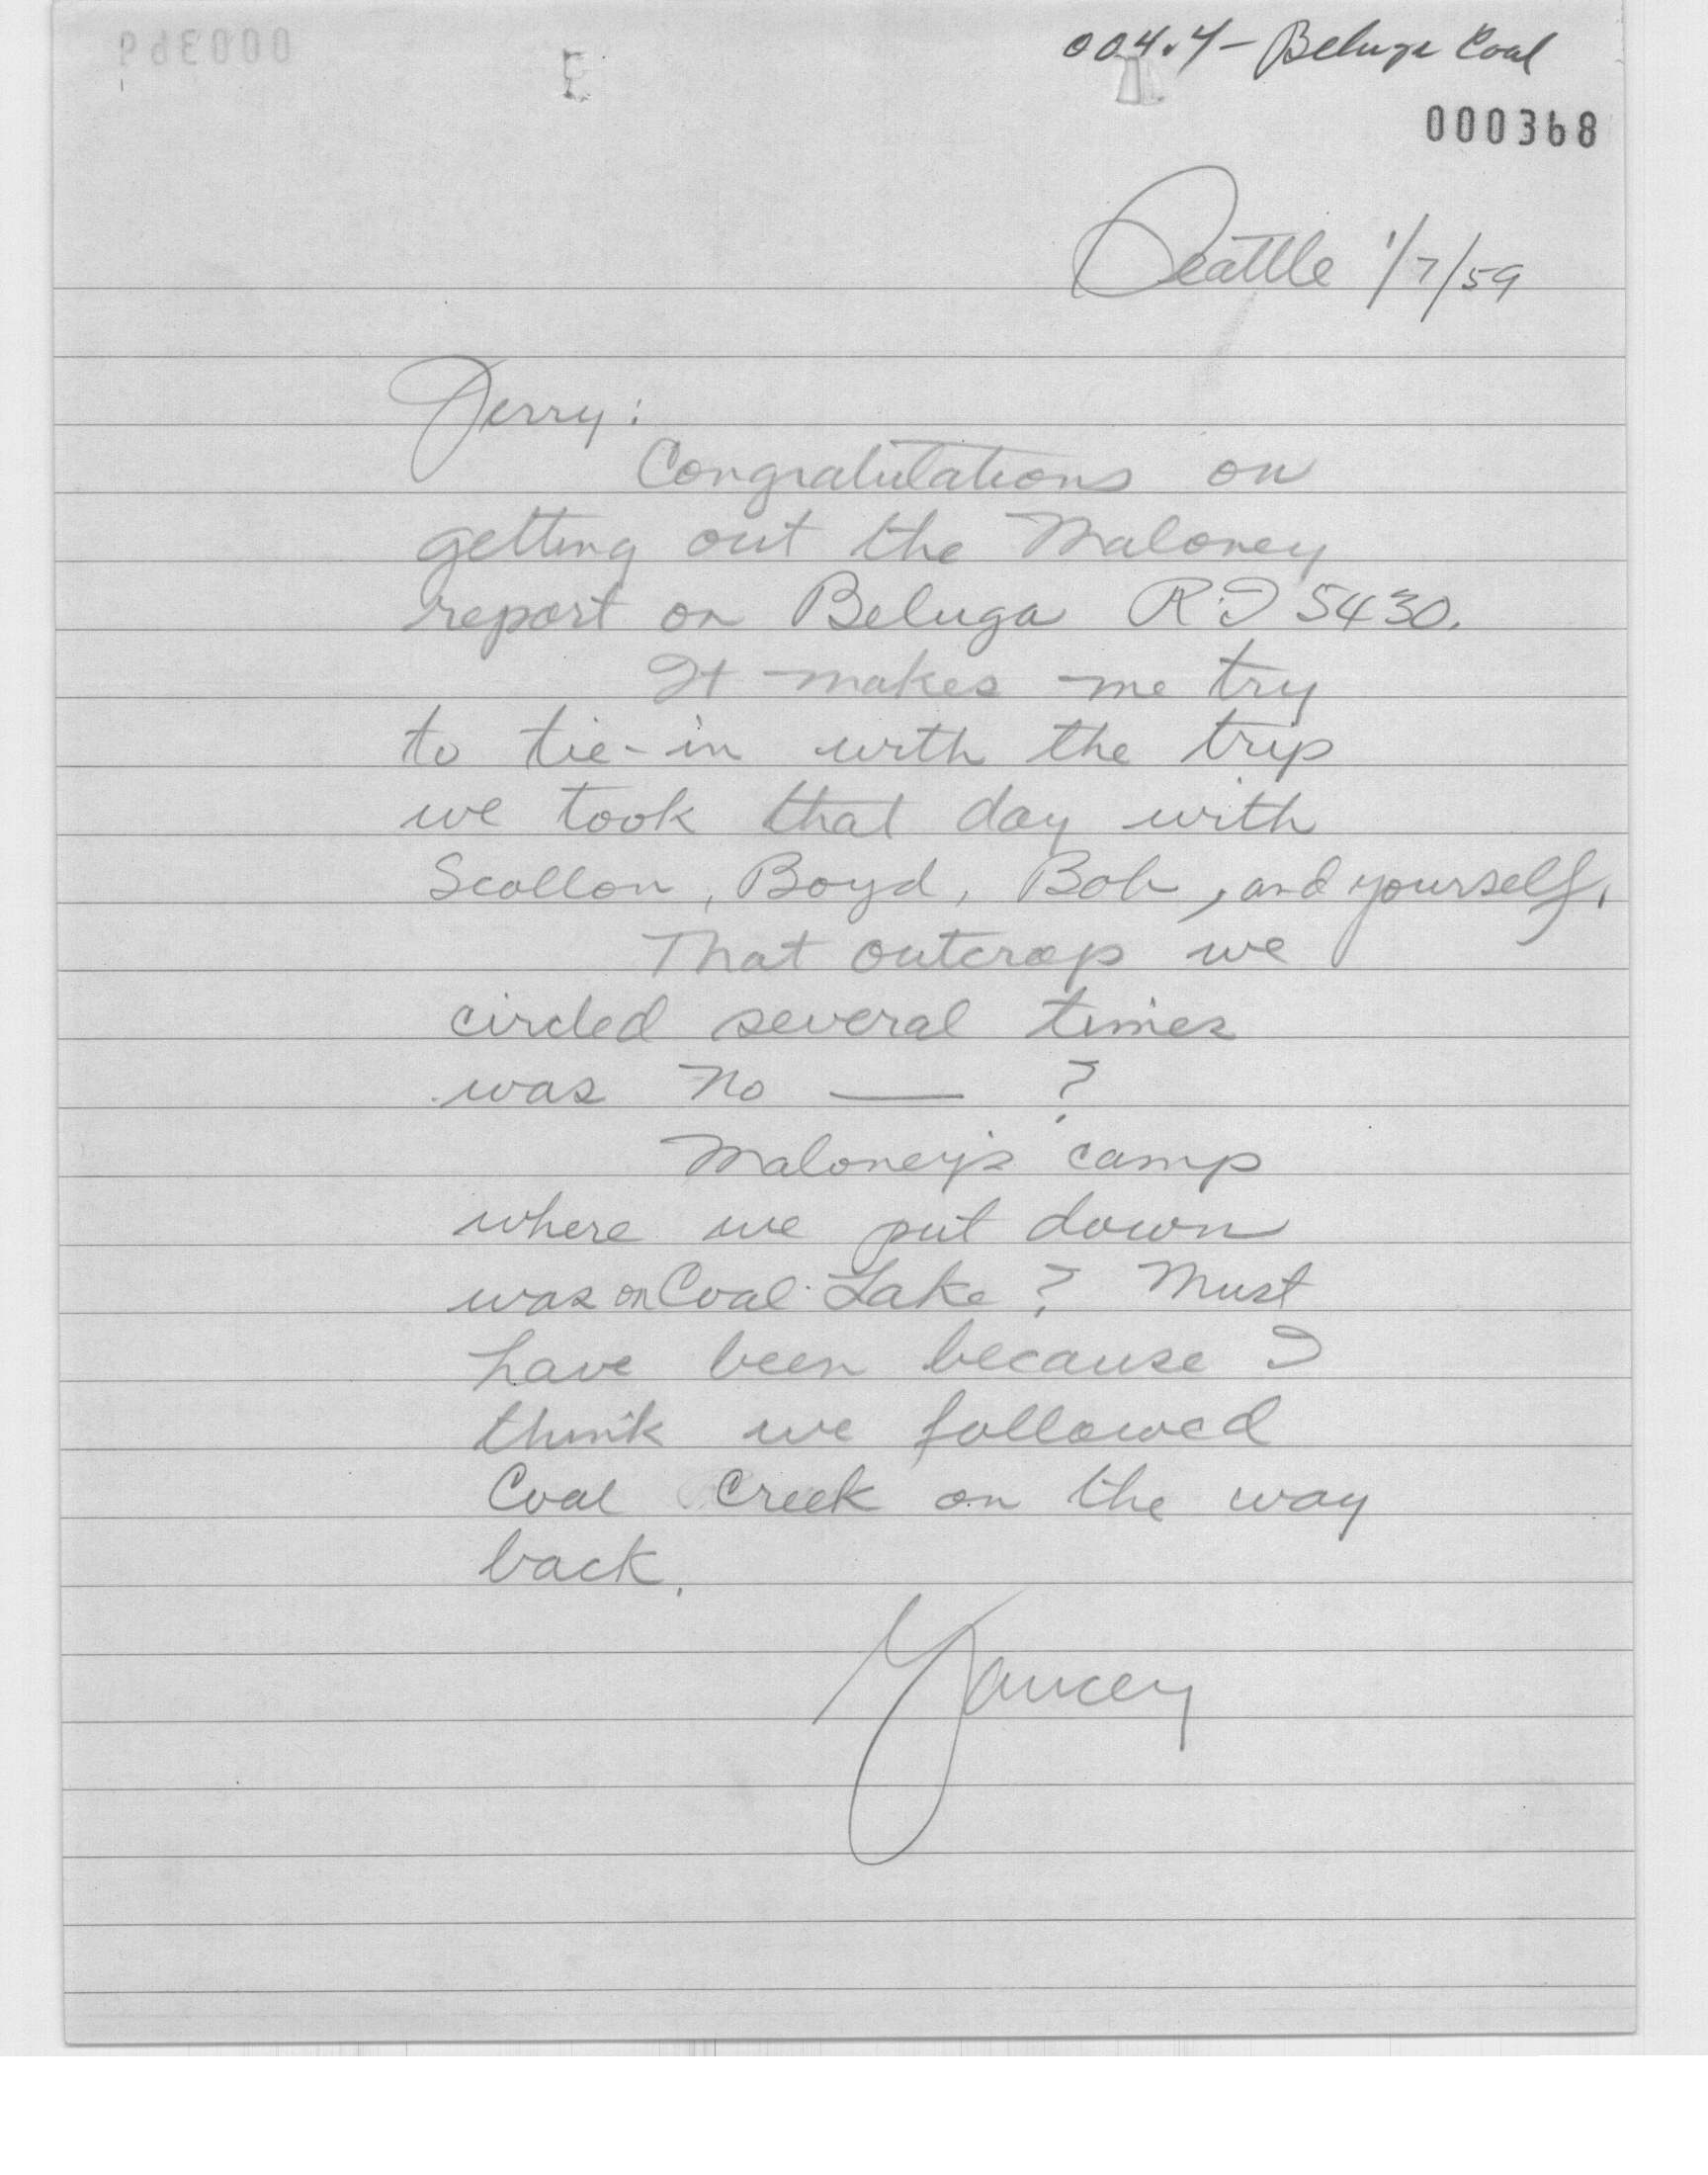 004.4 - Beluga Coal
000368
Seattle 1/7/59
Jerry:
Congratulations on
getting out the Maloney
report on Beluga R.I 5430.
It makes me try
to tie-in with the trip
we took that day with
Scollon, Boyd, Bob, and yourself.
That outcrop we
circled several times
was No — ?
Maloney's camp
where we put down
was on Coal Lake? Must
have been because I
think we followed
Coal Creek on the way
back.
Yancey